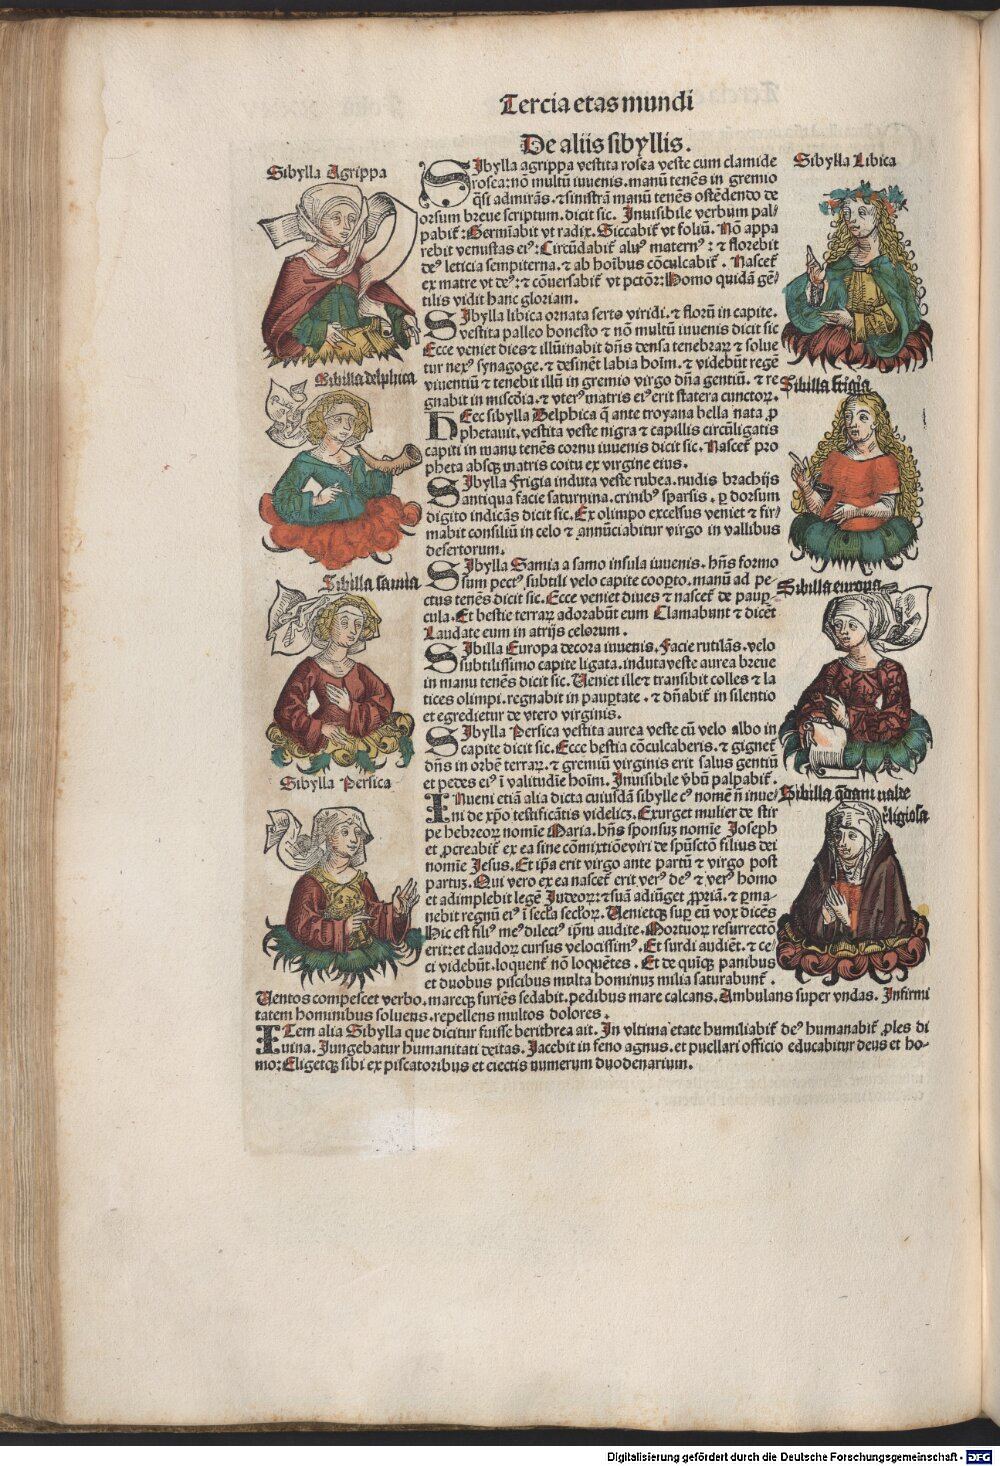 Tercia etas mundi
De aliis sibyllis.
Sibylla Agrippa
Sibylla Libica
SIbylla agrippa vestita rosea veste cum clamide
rosea: nō multū iuvenis. manū tenēs in gremio
q̄si admirās. ⁊ sinistrā manū tenēs ostēdendo de
orsum breue scriptum. dicit sic. Inuisibile verbum pal-
pabit᷑: Germīabit vt radix. Siccabit᷑ vt foliū. Nō appa
rebit venustas eiꝰ: Circūdabit᷑ aluꝰ maternꝰ: ⁊ florebit
deꝰ leticia sempiterna. ⁊ ab hoīibus cōculcabit᷑. Nascet᷑
ex matre vt deꝰ: ⁊ cōuersabit᷑ vt pctōr: Homo quidā gē-
tilis vidit hanc gloriam.
SIbylla libica ornata serto viridi. ⁊ florū in capite.
vestita palleo honesto ⁊ nō multū iuuenis dicit sic
Ecce veniet dies ⁊ illūinabit dn̄s densa tenebraꝝ ⁊ solue
tur nexꝰ synagoge. ⁊ desinēt labia hoīm. ⁊ videbūt regē
viuentiū ⁊ tenebit illū in gremio virgo dn̄a gentiū. ⁊ re
gnabit in misc̄dīa. ⁊ vterꝰ matris eiꝰ erit statera cunctoꝝ.
Sibilla delphica
Sibilla frigia
HEec sibylla Delphica q̄ ante troyana bella nata ꝓ
phetauit. vestita veste nigra ⁊ capillis circūligatis
capiti in manu tenēs cornu iuuenis dicit sic. Nascet᷑ pro
pheta absqꝫ matris coitu ex virgine eius.
SIbylla Frigia induta veste rubea. nudis brachijs
antiqua facie saturnina. crinibꝰ sparsis. ꝑ dorsum
digito indicās dicit sic. Ex olimpo excelsus veniet ⁊ fir-
mabit consiliū in celo ⁊ annūciabitur virgo in vallibus
desertorum.
Sibilla samia
Sibilla europa
SIbylla Samia a samo insula iuuenis. hn̄s formo
sum pectꝰ subtili velo capite cooꝑto. manū ad pe-
ctus tenēs dicit sic. Ecce veniet diues ⁊ nascet᷑ de pauꝑ-
cula. Et bestie terraꝝ adorabūt eum Clamabunt ⁊ dicēt
Laudate eum in atrijs celorum.
SIbilla Europa decora iuuenis. Facie rutilās. velo
subtilissimo capite ligata. induta veste aurea breue
in manu tenēs dicit sic. Veniet ille ⁊ transibit colles ⁊ la
tices olimpi. regnabit in pauꝑtate. ⁊ dn̄abit᷑ in silentio
et egredietur de vtero virginis.
Sibylla Persica
SIbylla Persica vestita aurea veste cū velo albo in
capite dicit sic. Ecce bestia cōculcaberis. ⁊ gignet᷑
dn̄s in orbē terraꝝ. ⁊ gremiū virginis erit salus gentiū
et pedes eiꝰ ī valitudīe hoīm. Inuisibile v̄bū palpabit᷑.
Sibilla q̄dam valde
religiosa
INueni etiā alia dicta cuiusdā sibylle cꝰ nomē n̄ inue-
ni de xp̄o testificātis videlicꝫ. Exurget mulier de stir
pe hebreoꝝ nomīe Maria. hn̄s sponsuꝫ nomīe Joseph
et ꝓcreabit᷑ ex ea sine cōmixtiōe viri de sp̄usctō filius dei
nomīe Jesus. Et ip̄a erit virgo ante partū ⁊ virgo post
partuꝫ. Qui vero ex ea nascet᷑ erit verꝰ deꝰ ⁊ verꝰ homo
et adimplebit legē Judeoꝝ: ⁊ suā adiūget ꝓpriā. ⁊ ꝑma-
nebit regnū eiꝰ ī secl̄a secl̄oꝝ. Venietqꝫ suꝑ eū vox dicēs
Hic est filiꝰ meꝰ dilectꝰ ip̄m audite. Mortuoꝝ resurrectō
erit: et claudoꝝ cursus velocissimꝰ. Et surdi audiēt. ⁊ ce-
ci videbūt. loquent᷑ nō loquētes. Et de quīqꝫ panibus
et duobus piscibus multa hominuꝫ milia saturabunt᷑.
Ventos compescet verbo. mareqꝫ furiēs sedabit. pedibus mare calcans. Ambulans super vndas. Infirmi
tatem hominibus soluens. repellens multos dolores.
ITem alia Sibylla que dicitur fuisse herithrea ait. In vltima etate humiliabit᷑ deꝰ humanabit᷑ ꝓles di
uina. Jungebatur humanitati deitas. Jacebit in feno agnus. et puellari officio educabitur deus et ho-
mo: Eligetqꝫ sibi ex piscatoribus et eiectis numerum duodenarium.
Digitalisierung gefördert durch die Deutsche Forschungsgemeinschaft - DFG